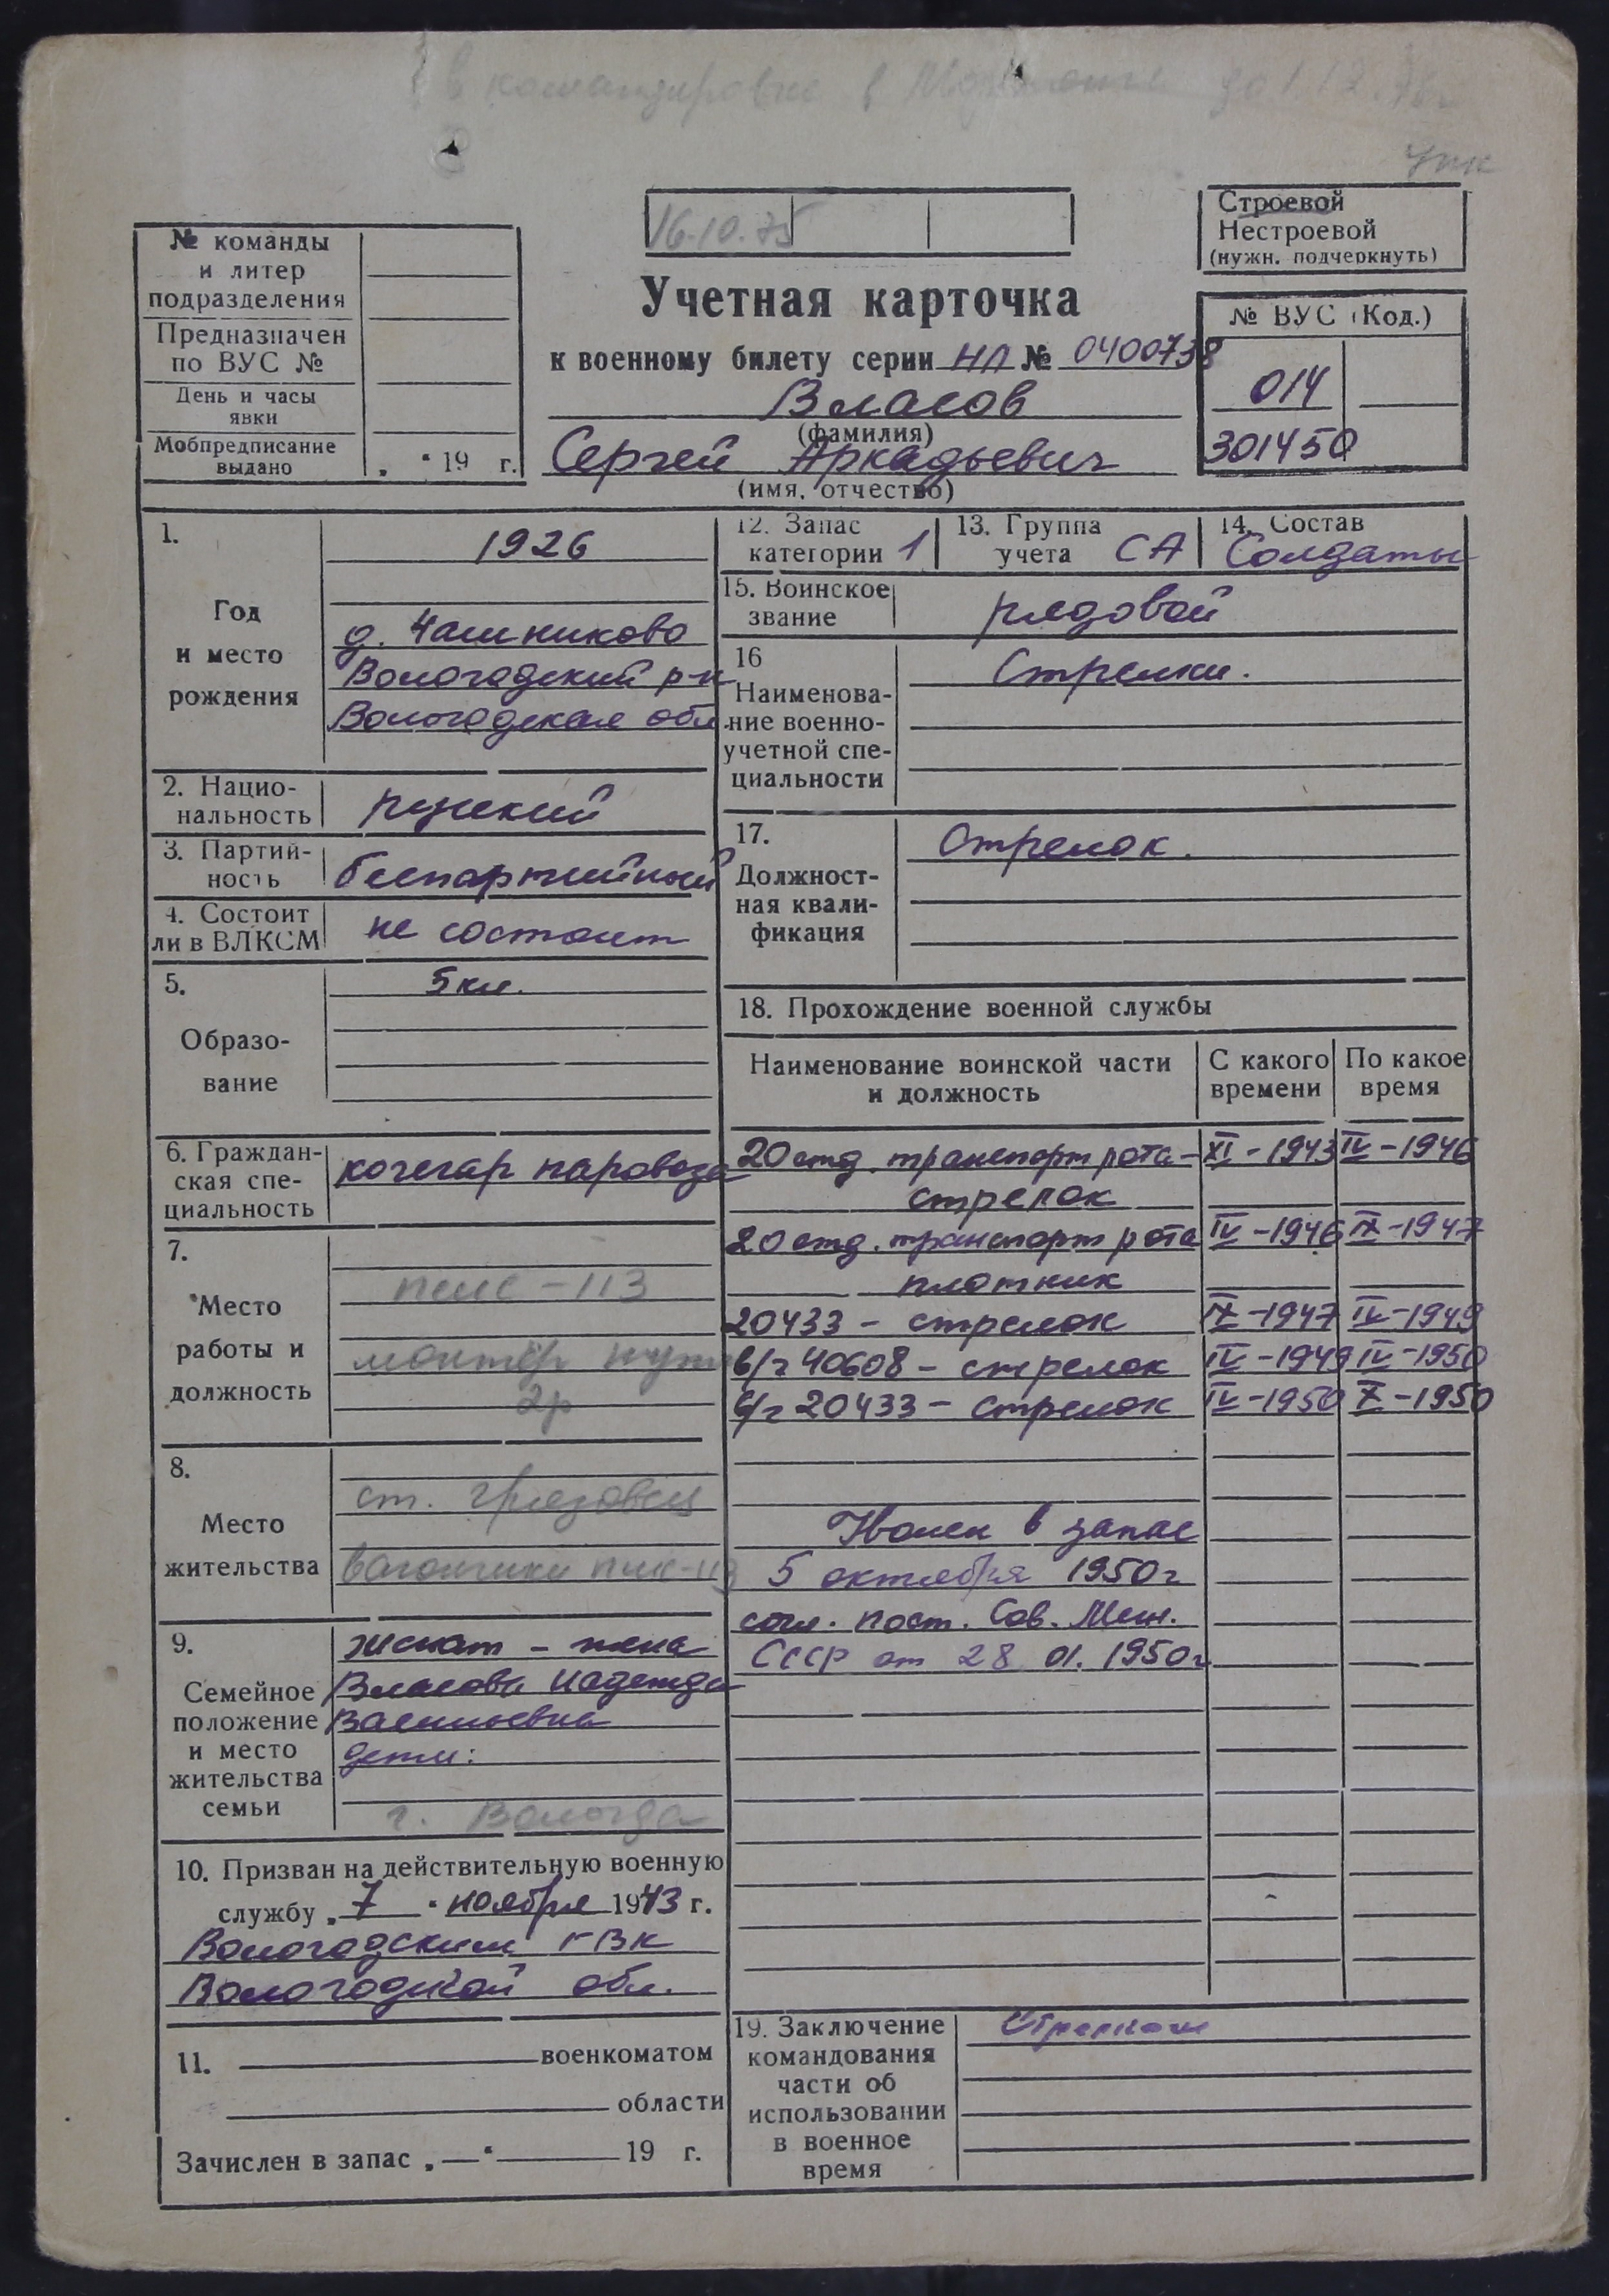 в командировке в до 1.12.
16.10.75
Строевой
Нестроевой
(нужн. подчеркнуть)
№ команды
и литер
подразделения
Предназначен
по ВУС №
День и часы
явки
Мобпредписание
выдано „ “ 19 г.
Учетная карточка
к военному билету серии НЛ № 0400738
Власов
(фамилия)
Сергей Аркадьевич
(имя, отчество)
№ ВУС (Код.)
014
301450
1.
Год
и место
рождения
1926
д. Чашниково
Вологодский р-н
Вологодская обл
2. Нацио-
нальность русский
3. Партий-
ность беспартийный
4. Состоит
ли в ВЛКСМ не состоит
5.
Образо-
вание
5 кл.
6. Граждан-
ская спе-
циальность
кочегар паровоза
7.
Место
работы и
должность
пмс - 113
монтёр пути
2р
8.
Место
жительства
ст. Грязовец
вагончики пмс-113
9.
Семейное
положение
и место
жительства
семьи
женат - жена
Власова Надежда
Васильевна
дети:
г. Вологда
10. Призван на действительную военную
службу „ 7 “ ноября 1943 г.
Вологодским ГВК
Вологодской обл.
11. военкоматом
области
Зачислен в запас „ — “ 19 г.
12. Запас
категории 1
13. Группа
учета СА
14. Состав
Солдаты
15. Воинское
звание рядовой
16
Наименова-
ние военно-
учетной спе-
циальности
Стрелки.
17.
Должност-
ная квали-
фикация
Стрелок.
18. Прохождение военной службы
Наименование воинской части
и должность
С какого
времени
По какое
время
20 отд. транспорт рота - XI - 1943 IV - 1946
стрелок
20 отд. транспорт рота IV - 1946 IX - 1947
плотник
20433 - стрелок IX - 1947 IV - 1949
в/ч 40608 - стрелок IV - 1949 IV - 1950
в/ч 20433 - стрелок IV - 1950 X - 1950
Уволен в запас
5 октября 1950г
согл. пост. Сов. Мин.
СССР от 28 01. 1950г
19. Заключение
командования
части об
использовании
в военное
время
Стрелком